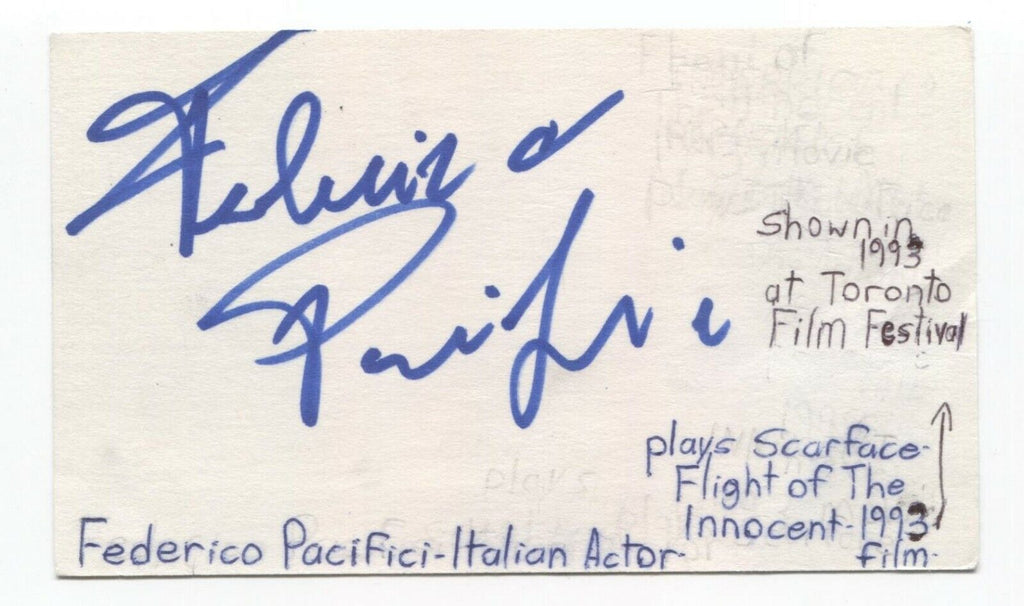 Federico
Pacifici
Shown in
1993
at Toronto
Film Festival
plays Scarface-
Flight of The
Innocent-1993
film-
Federico Pacifici-Italian Actor-